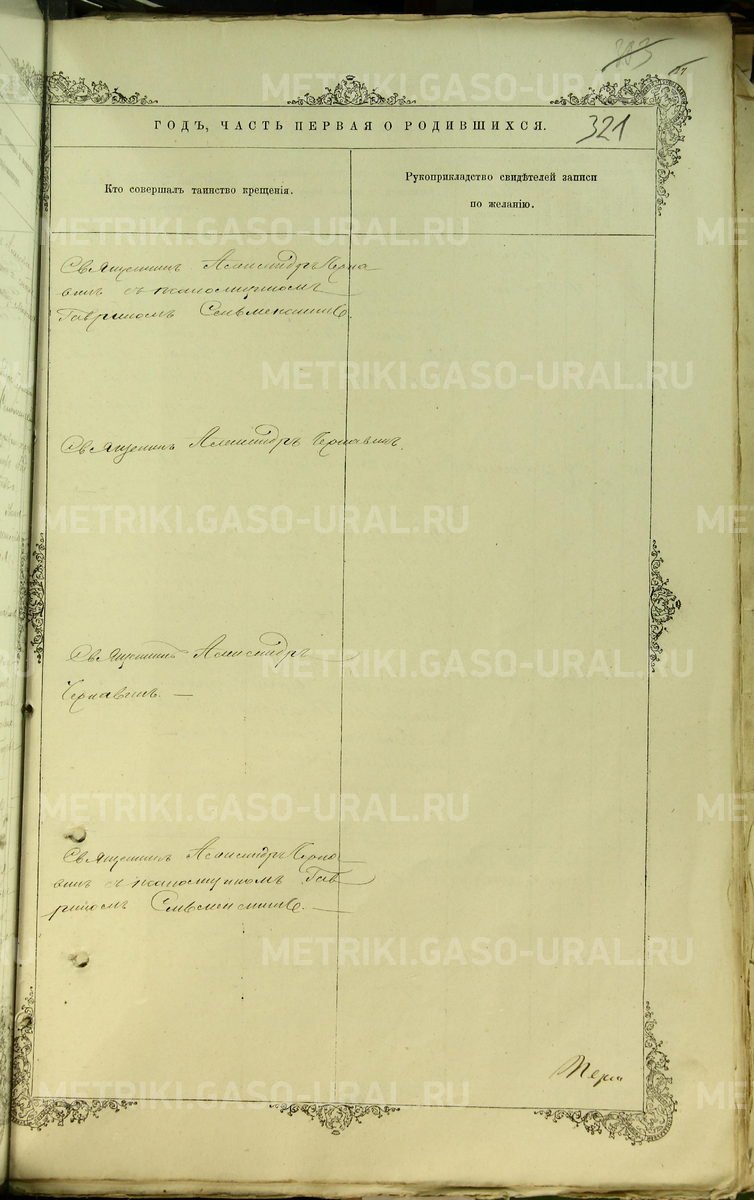 303
321
ГОДЪ, ЧАСТЬ ПЕРВАЯ О РОДИВШИХСЯ.
Кто совершалъ таинство крещенія.
Рукоприкладство свидѣтелей записи
по желанію.
Священникъ Александръ Черна
винъ съ псаломщикомъ
Гавріиломъ
Священникъ Александръ Чернавинъ.
Священникъ Александръ
Чернавинъ. —
Священникъ Александръ Черна
винъ съ псаломщикомъ Гав
ріиломъ
METRIKI.GASO-URAL.RU